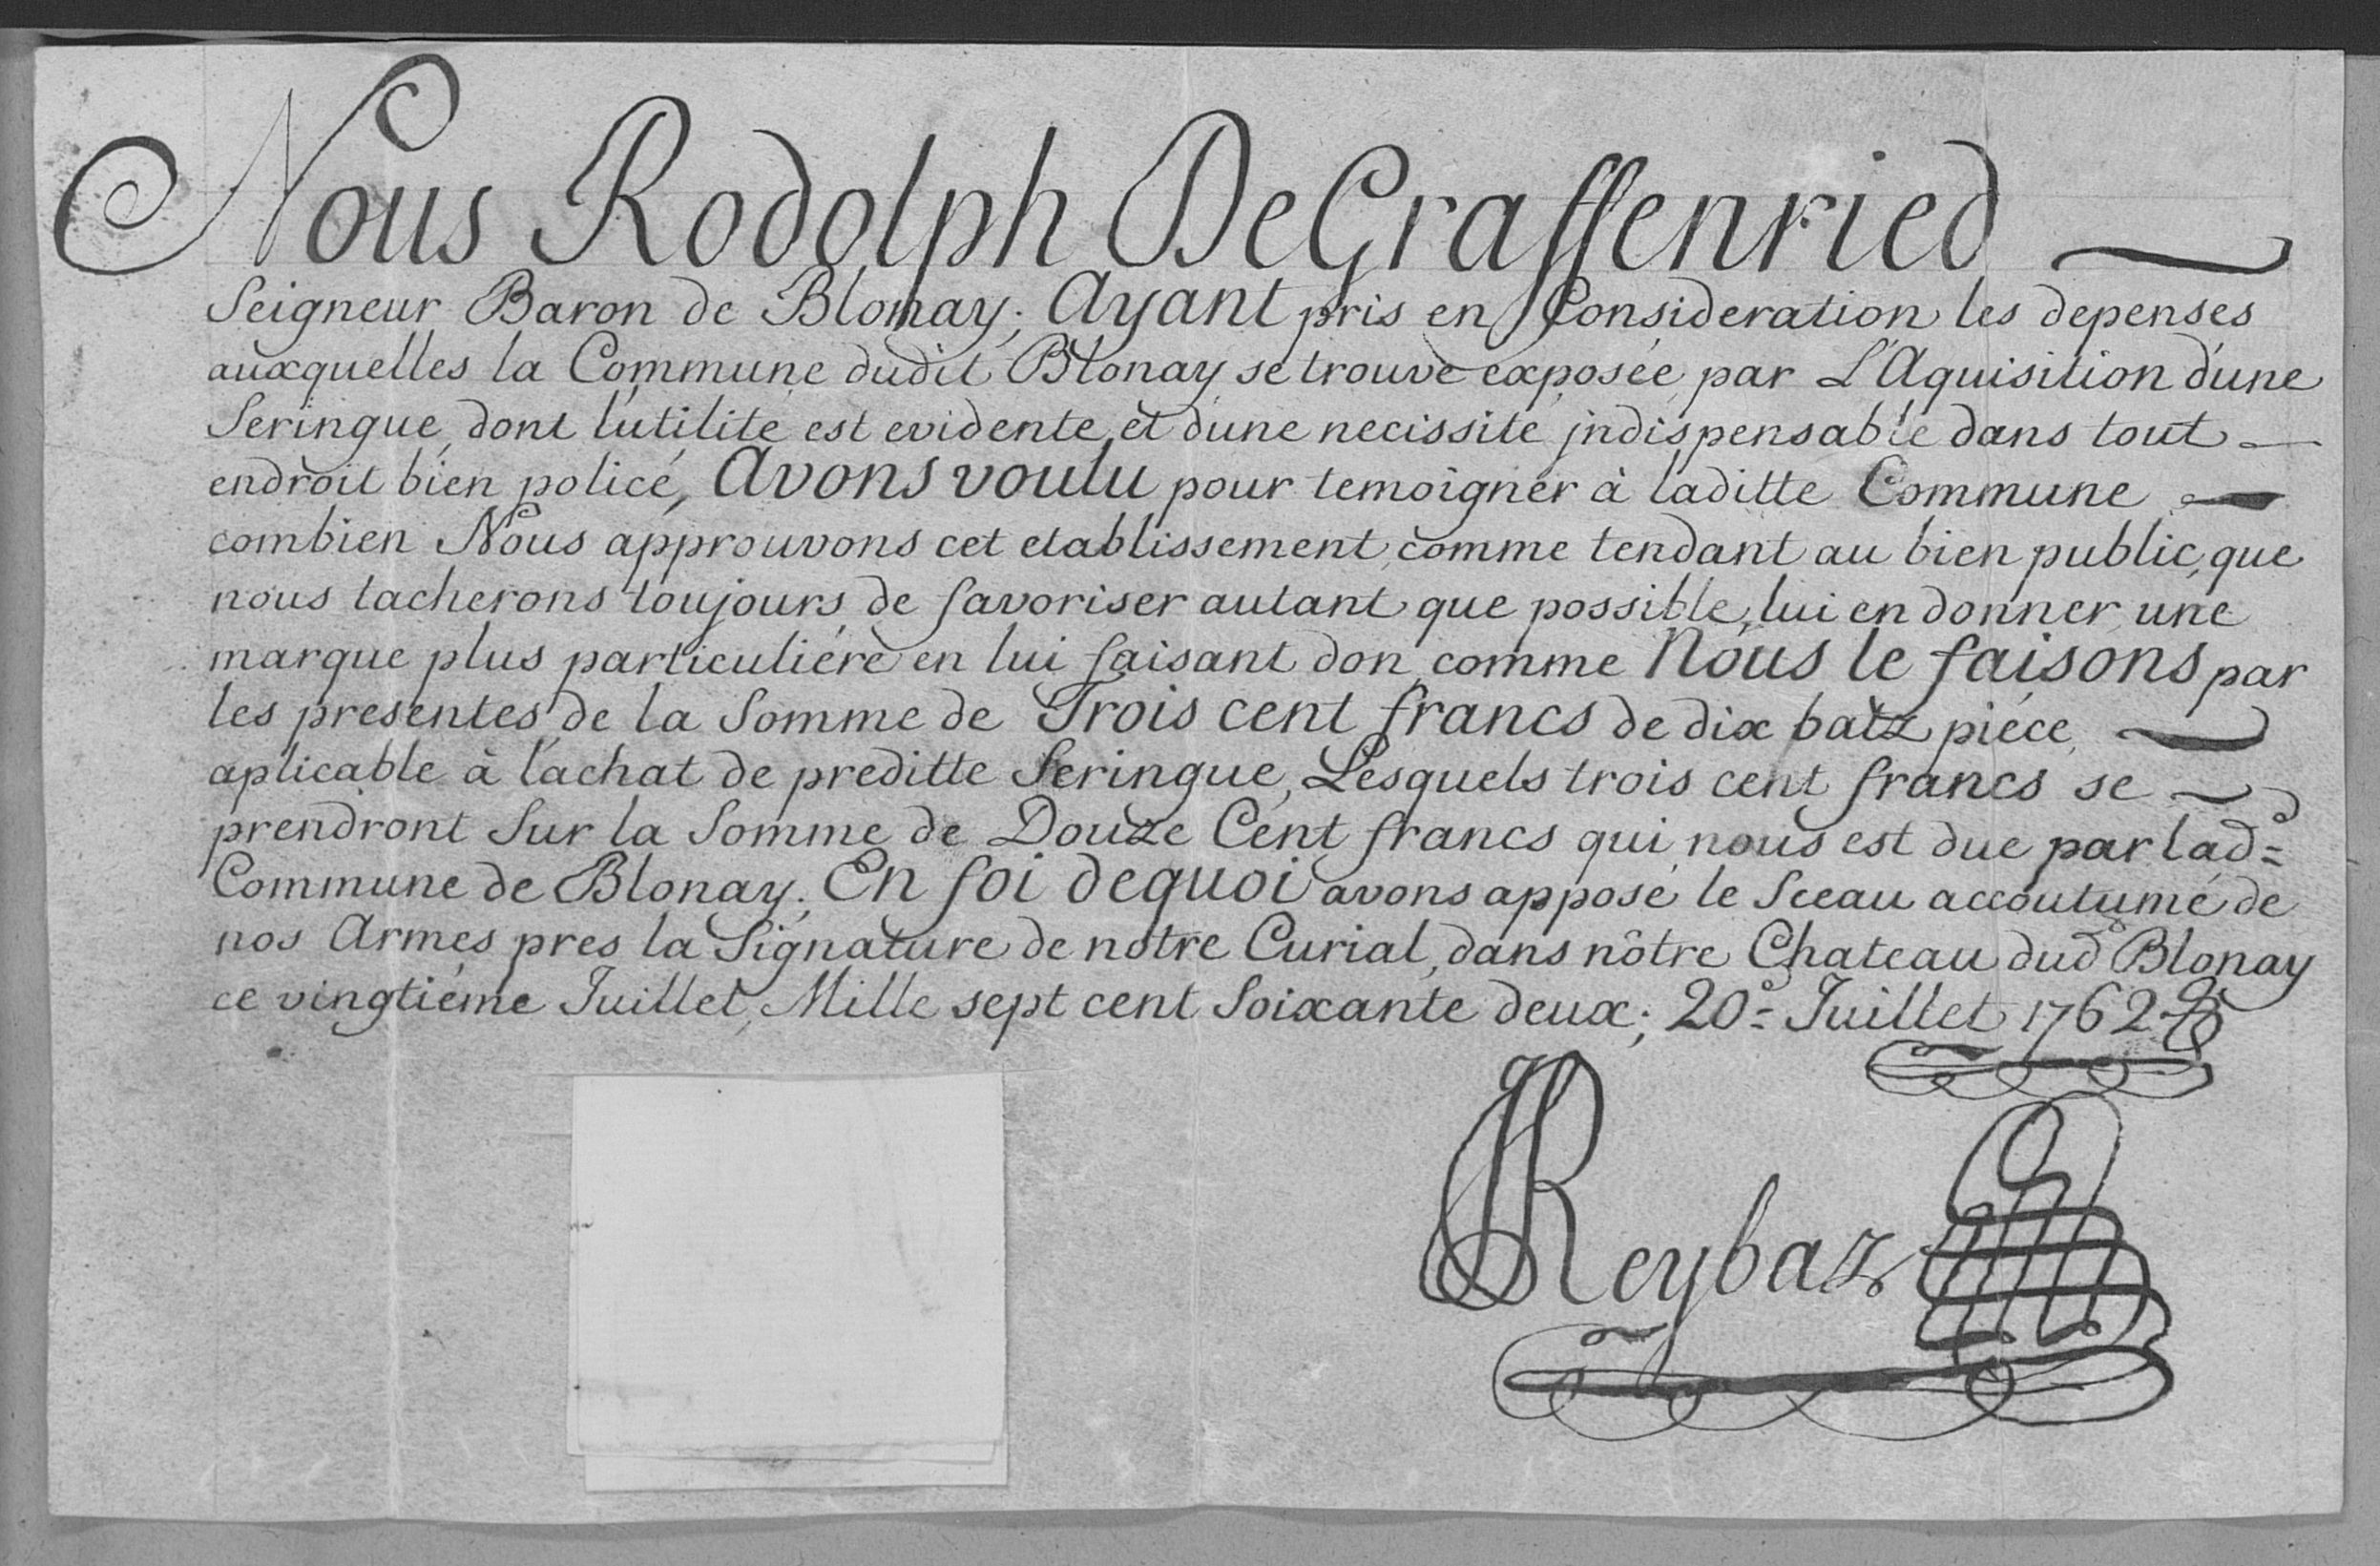 Nous Rodolph De Graffenried
Seigneur Baron de Blonay; Ayant pris en Consideration les depenses
auxquelles la Commune dudit Blonay se trouve exposée par L'Aquisition d'une
Seringue, dont l'utilité est evidente, et d'une necissité jndispensable dans tout
endroit bien policé, Avons voulu pour temoigner à laditte Commune
combien Nous approuvons cet etablissement, comme tendant au bien public, que
nous tacherons toujours de favoriser autant que possible, lui en donner une
marque plus particuliére en lui faisant don, comme Nous le faisons par
les presentes, de la Somme de Trois cent francs de dix batz piéce,
aplicable à l'achat de preditte Seringue, Lesquels trois cent francs se
prendront Sur la Somme de Douze Cent francs qui nous est due par lad.e
Commune de Blonay; En foi dequoi avons apposé le Sceau accoutumé de
nos Armes, pres la Signature de notre Curial, dans nôtre Chateau dud Blonay
ce vingtiéme Juillet, Mille sept cent Soixante deux; 20.e Juillet 1762.
Reybaz